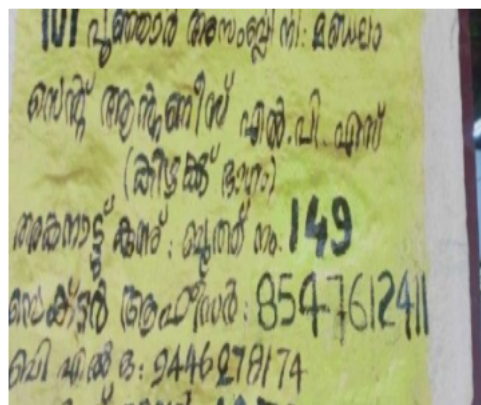 101 പൂഞ്ഞാർ അസംബ്ലി നി: മണ്ഡലം
സെന്റ് ആന്റണീസ് എൽ.പി. എസ്
(കിഴക്ക് ഭാഗം)
കുന്ന് : ബൂത്ത് നം. 149
സെക്ടർ ആഫീസർ: 8547612411
ബി എൽ ഒ: 9446278174